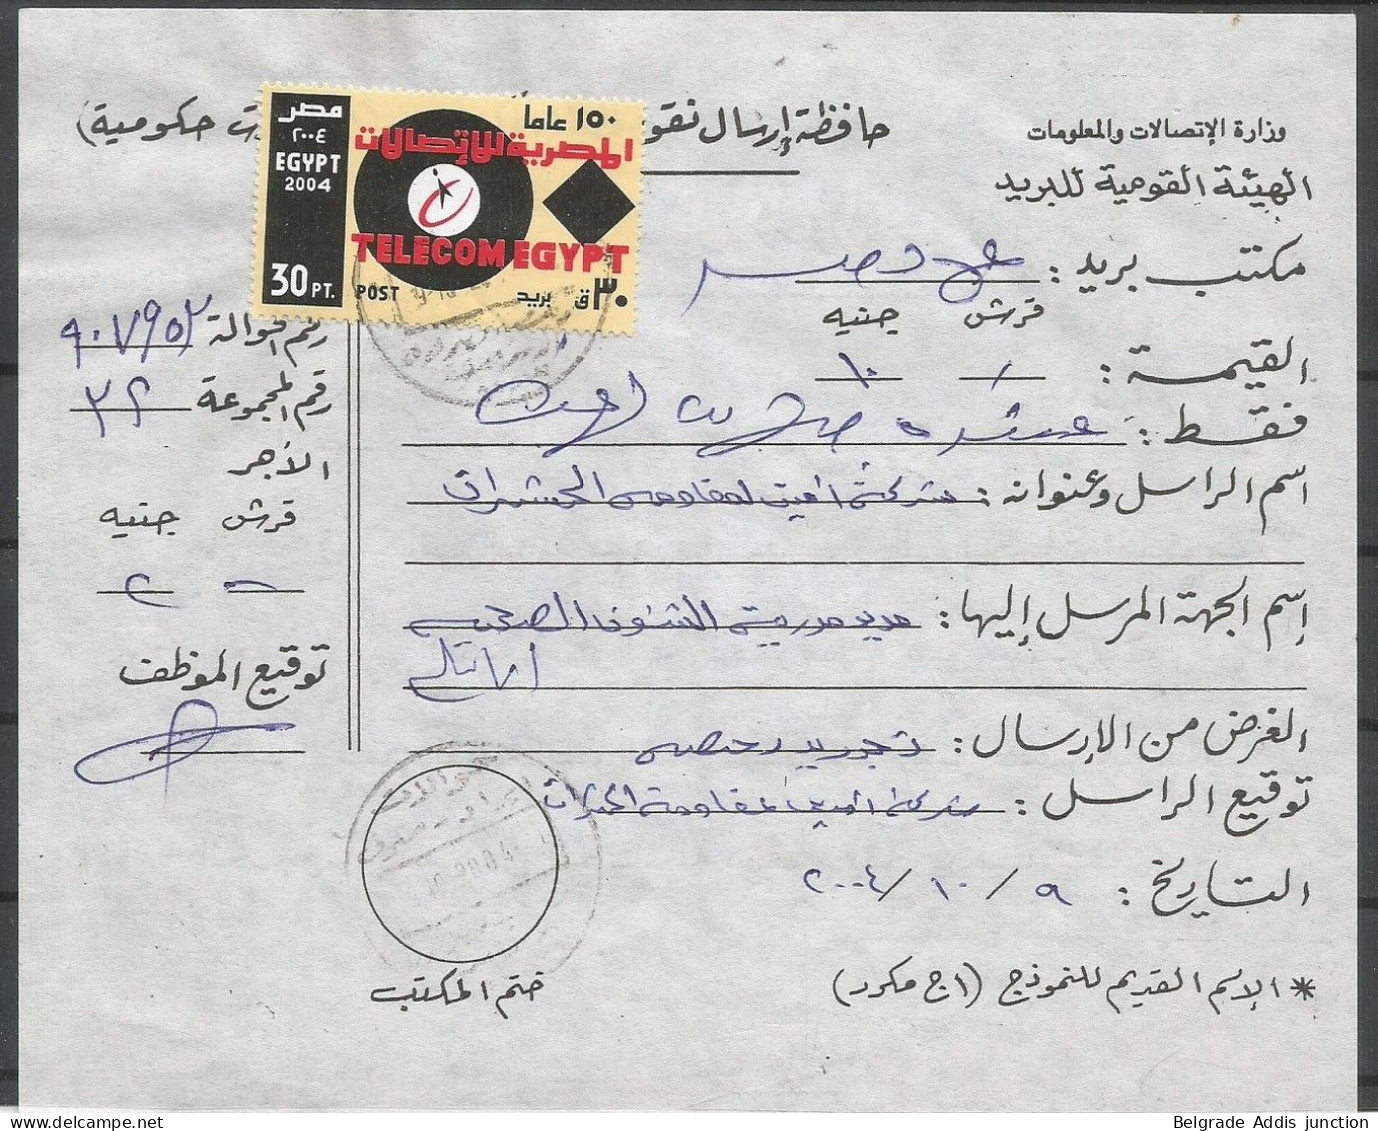 وزارة الإتصالات والمعلومات
الهيئة القومية للبريد
حافظة إرسال نقو
ت حكومية)
مصر
٢٠٠٤
EGYPT
2004
30 PT.
١٥٠ عاما
المصرية للاتصالات
TELECOM EGYPT
POST
بريد
٣٠ ق
مكتب بريد :
قرش جنيه
القيمة : / ١٠
فقط : عشرة
اسم الراسل وعنوانه : شركة امين لمقاومه الحشرات
إسم الجهة المرسل إليها : الشئون الصحيه
الغرض من الإرسال : تجديد رخصه
توقيع الراسل : شركة امين لمقاومة الحشرات
التاريخ : ٩ / ١٠ / ٢٠٠٤
* الإسم القديم للنموذج (٩ج مكرر)
رقم الحوالة ٩٠٧٩٥٢
رقم المجموعة ٣٢
الأجر
قرش جنيه
- ٢
توقيع الموظف
ختم المكتب
Belgrade Addis junction